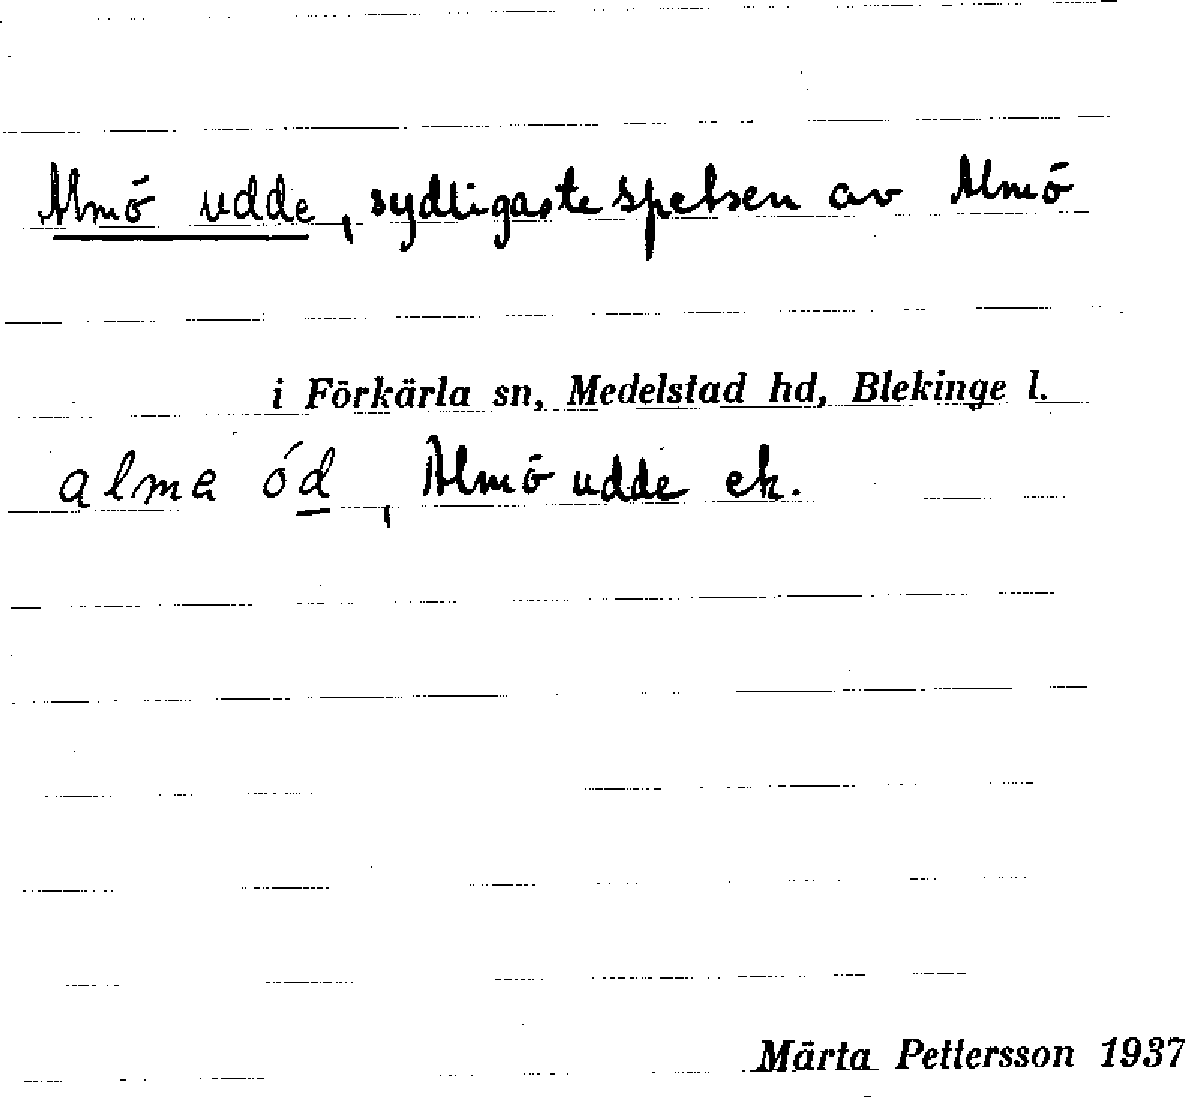 Almö udde, sydligaste spetsen av Almö
i Förkärla sn, Medelstad hd, Blekinge l.
alma ód, Almö udde ek.
Märta Pettersson 1937